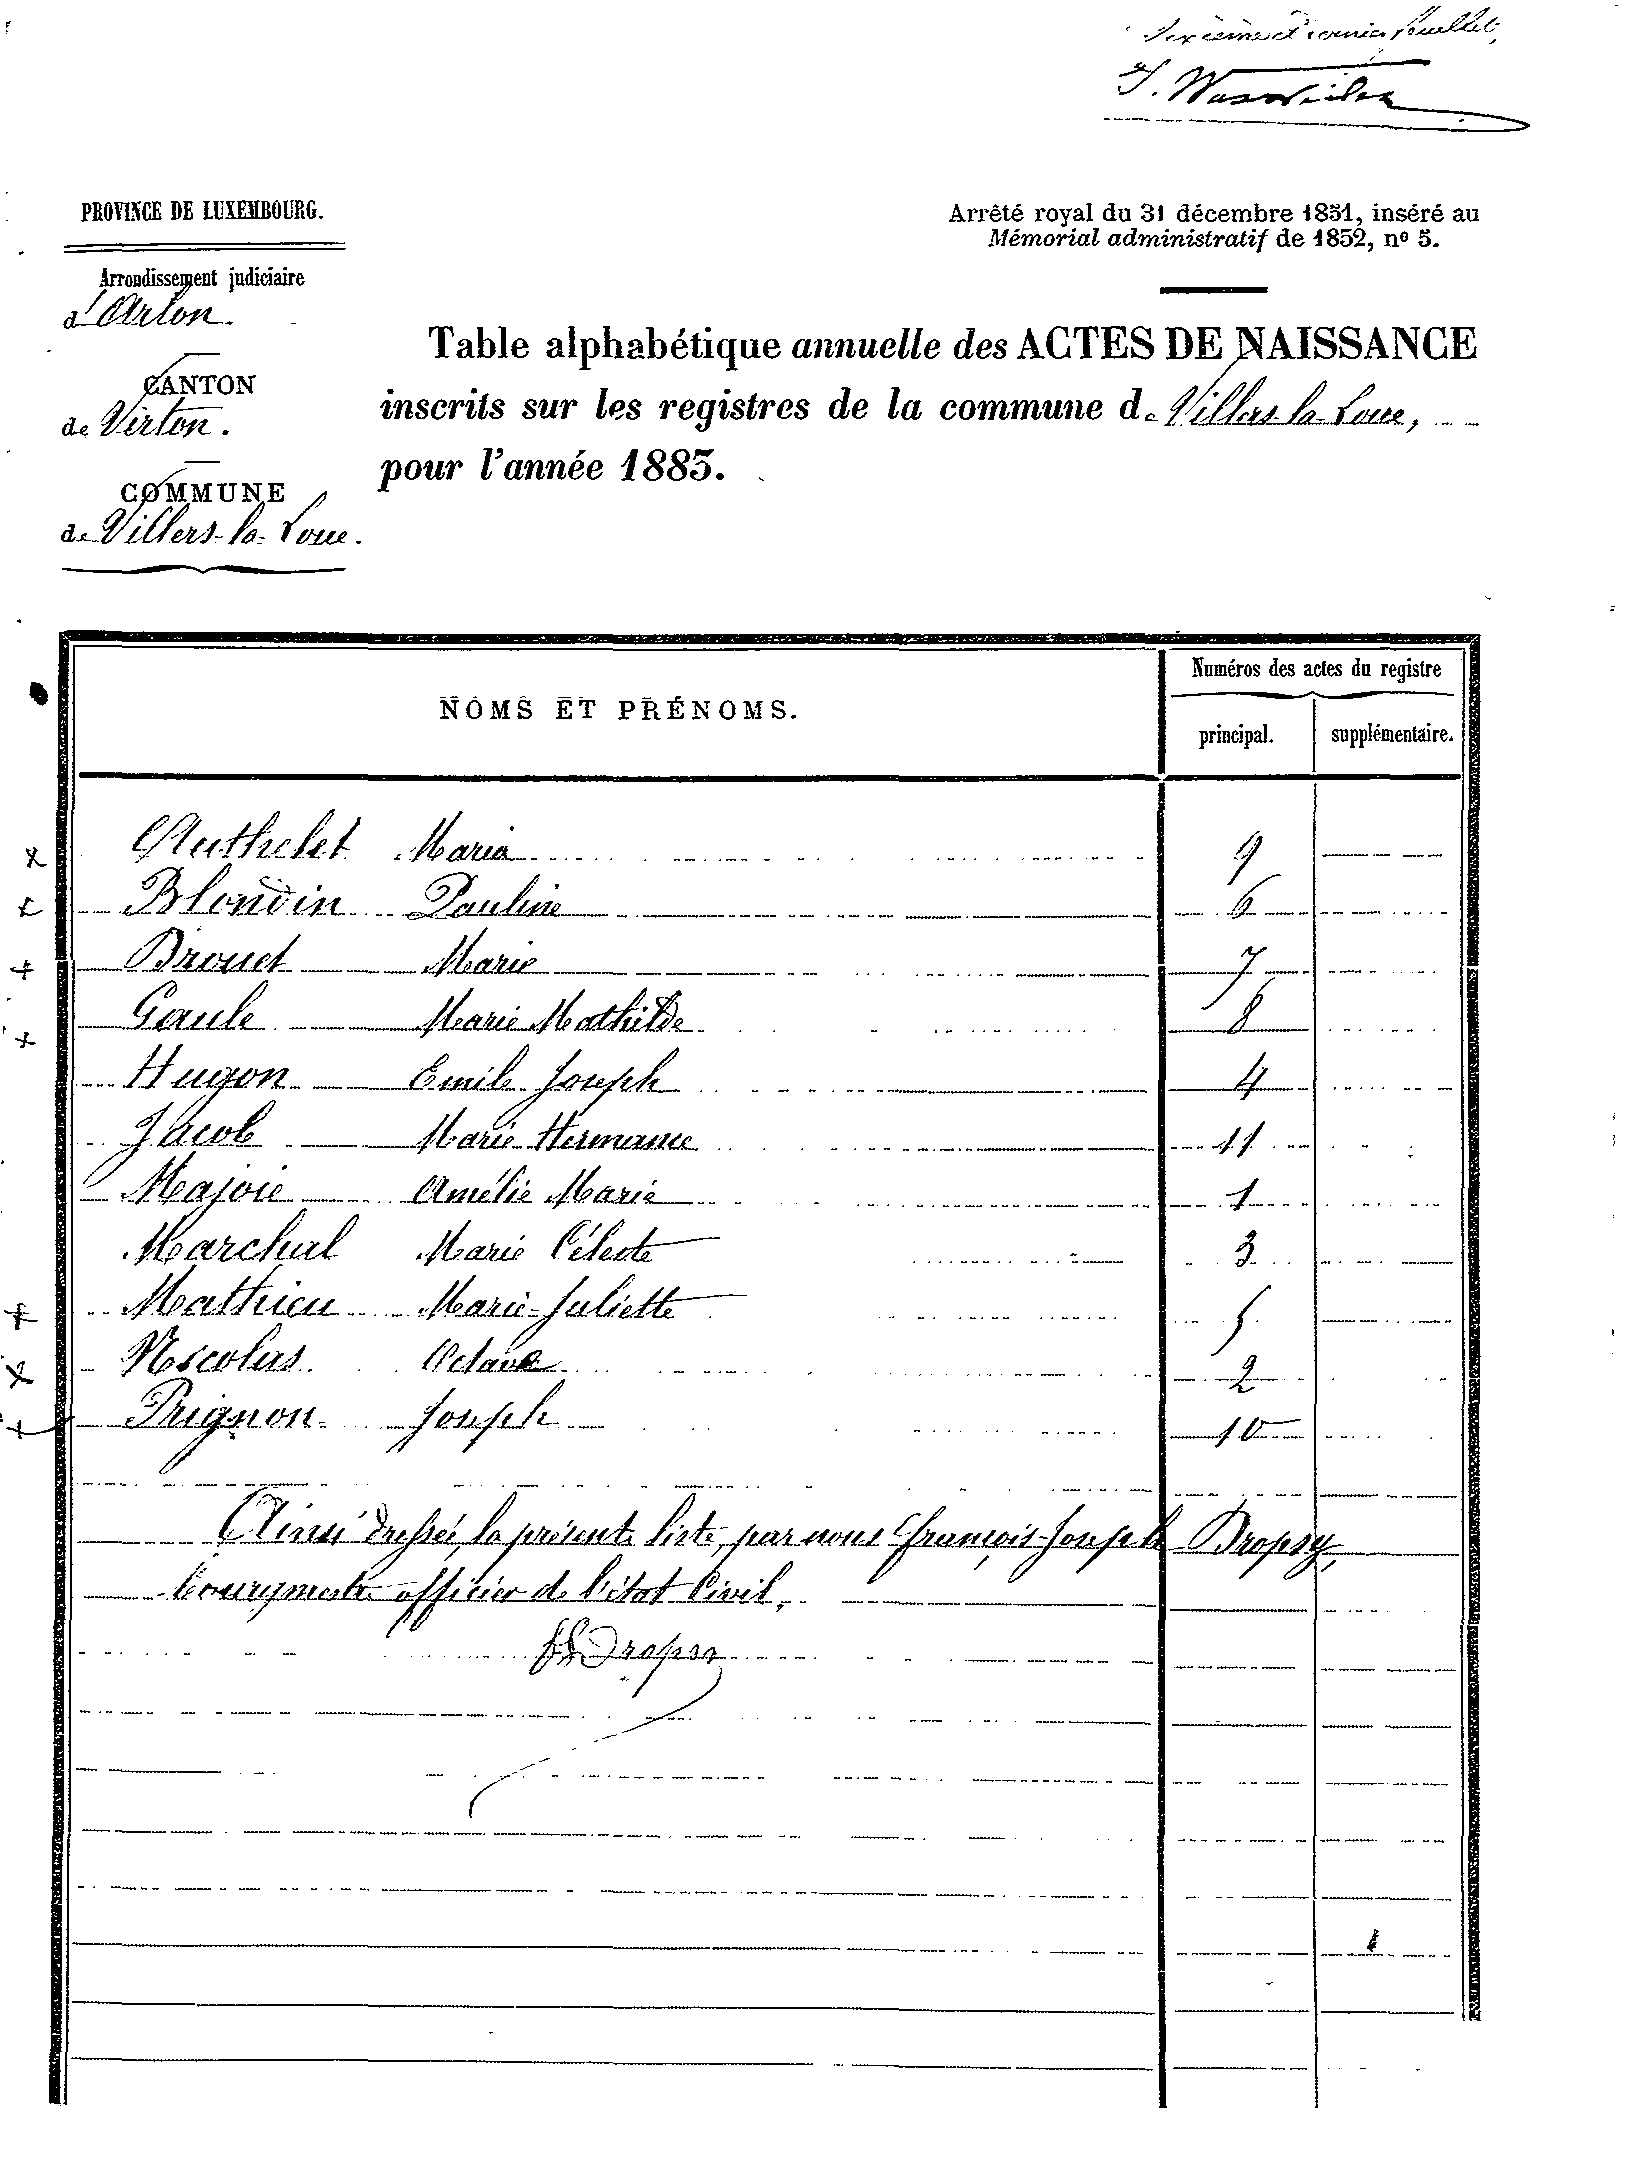 et dernier feuillet,
PROVINCE DE LUXEMBOURG.
Arrondissement judiciaire
d'Arlon.
CANTON
de Virton.
COMMUNE
de Villers-la-Loue.
Arrêté royal du 31 décembre 1851, inséré au
Mémorial administratif de 1852, nº 5.
Table alphabétique annuelle des ACTES DE NAISSANCE
inscrits sur les registres de la commune de Villers-la-Loue,
pour l'année 1885.
NOMS ET PRÉNOMS.
Numéros des actes du registre
principal.
supplémentaire.
Authelet Maria 9
Blondin Pauline 6
Brouet Marie 7
Gaule Marie Mathilde 8
Hugon Emile Joseph 4
Jacob Marie Hermance 11
Majoie Amélie Marie 1
Marchal Marie Céleste 3
Mathieu Marie-Juliette 5
Nicolas Octave 2
Prignon Joseph 10
Ainsi dressée, la présente liste, par nous François-Joseph Dropsy,
bourgmestre officier de l'état Civil,
Dropsy